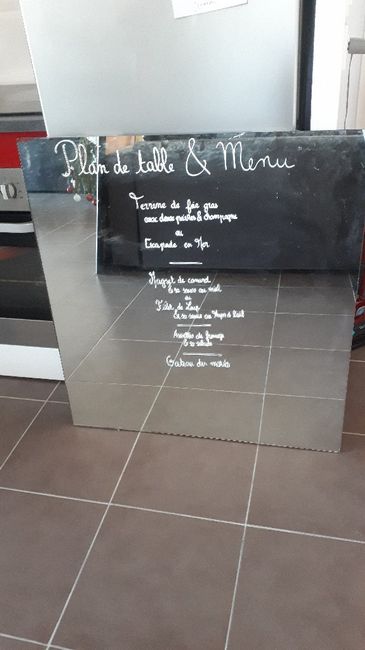 Plan de table & Menu
Terrine de foie gras
aux deux poivres & champagne
ou
Escapade en Mer
Magret de canard
& sa sauce au miel
ou
Filet de Loup
& sa sauce au
Assiette de fromage
& sa salade
Gateau des mariés